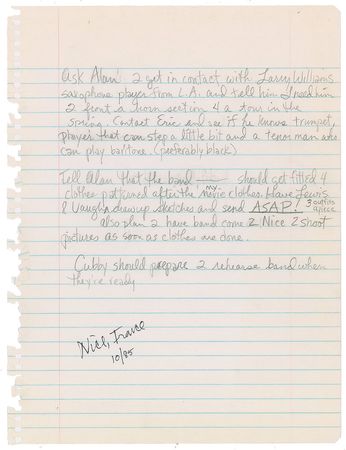 Ask Alan 2 get in contact with Larry Williams
saxophone player from L.A. and tell him I need him
2 front a horn section 4 a tour in the
spring. Contact Eric and see if he knows trumpet
player that can step a little bit and a tenor man who
can play baritone. (preferably black)
Tell Alan that the band should get fitted 4
clothes patterned after the my movie clothes. Have Lewis
& Vaughn draw up sketches and send ASAP! 3 outfits apiece
also plan 2 have band come 2 Nice 2 shoot
pictures as soon as clothes are done.
Gubby should prepare 2 rehearse band when
they're ready
Nice, France
10/85